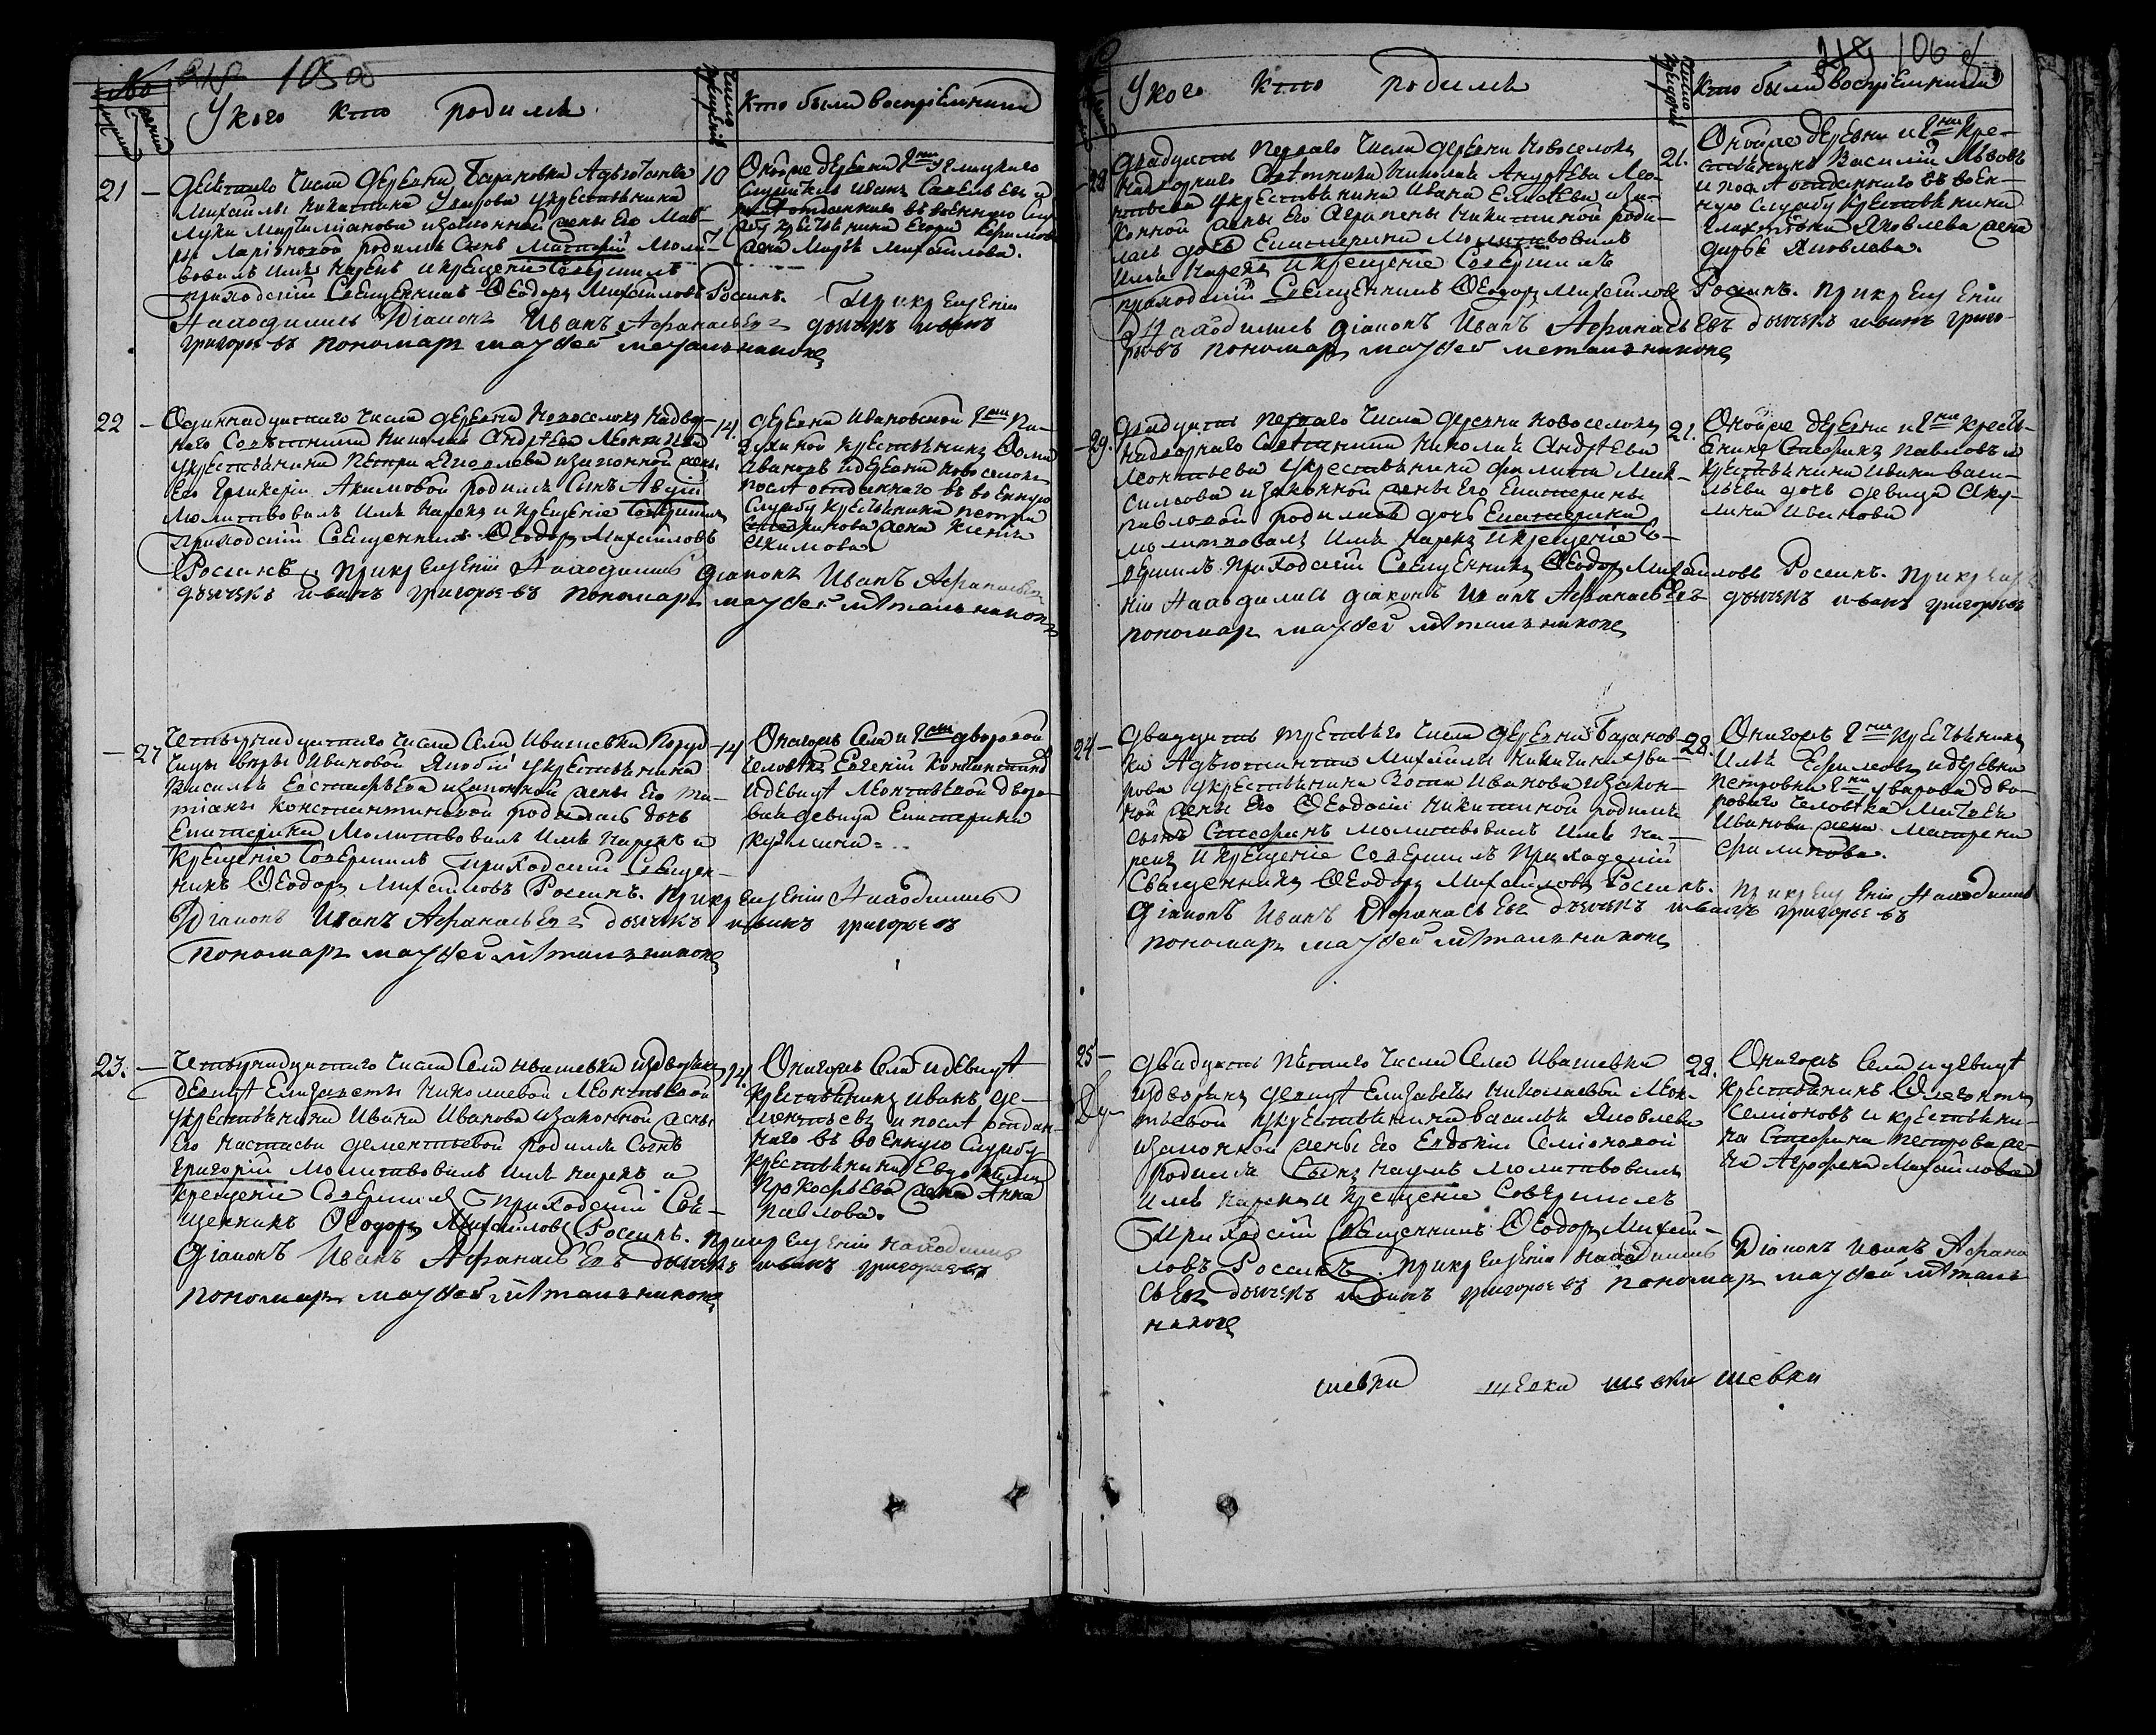 105
У кого кто родился
Число крещения
Кто были восприемники
21 –
Десятаго числа деревни Барановки Адъютанта
Михайлы Никитина Уварова у крестьянина
Луки Мартимианова и законной жены его Мав-
ры Ларiоновой родился сынъ Матфей Моли-
вовалъ имя нарекъ и крещенiе совершилъ
приходскiй священникъ Ѳеодоръ Михайловъ Росинъ. При крещенiи
находились Дiаконъ Иванъ Афанасьевъ дьячекъ иванъ
григорьевъ пономарь матвей метальниковъ
10
Оной же деревни
служитель Иванъ Савельевъ и
отданнаго въ военную слу-
жбу крестьянина Егора
жена Марья Михайлова.
22 –
Одиннадцатаго числа деревни Новоселокъ Надвор-
наго Совѣтника Николая Андрѣева Леонтьева
у крестьянина Петра Яковлева и законной жены
его Гликерiи Акимовой родился сынъ
Молитвовалъ имя нарекъ и крещенiе совершилъ
приходскiй священникъ Ѳеодоръ Михайловъ
Росинъ. При крещенiи находились дiаконъ Иванъ Афанасьевъ
дьячекъ иванъ григорьевъ пономарь матвей мѣтальниковъ
14.
деревни Ивановской
крестьянинъ Фома
Ивановъ и деревни Новоселокъ
послѣ отданнаго въ военную
службу крестьянина Петра
жена Ксенiя
Акимова.
27
Четырнадцатаго числа села Ивашевки
Вѣры Ивановой у крестьянина
Василья Евстафьева и законной жены его Та-
тiаны Константиновой родилась дочь
Екатерина Молитвовалъ имя нарекъ и
крещенiе совершилъ приходскiй священ-
никъ Ѳеодоръ Михайловъ Росинъ. При крещенiи находились
Дiаконъ Иванъ Афанасьевъ дьячекъ иванъ григорьевъ
пономарь матвей мѣтальниковъ
14
Онагожъ села и дворовой
человѣкъ Евгенiй Константиновъ
и девицы Леонтьевой дворо-
вая девица Екатерина
Кузмина.
23. –
Четырнадцатаго числа села Ивашевки из дворянъ
девицы Елизаветы Николаевой Леонтьевой
у крестьянина Ивана Иванова и законной жены
его Настасьи Дементьевой родился сынъ
Григорiй Молитвовалъ имя нарекъ и
крещенiе совершилъ приходскiй свя-
щенникъ Ѳеодоръ Михайловъ Росинъ. При крещенiи находились
Дiаконъ Иванъ Афанасьевъ дьячекъ иванъ григорьевъ
пономарь матвей мѣтальниковъ
14.
Онагожъ села и девицы
крестьянинъ Иванъ Де-
ментьевъ и послѣ отдан-
наго въ военную службу
крестьянина Евдокима
Прокофьева жена Анна
Павлова.
106
У кого кто родился
Число крещения
Кто были восприемники
28
Двадцать перваго числа деревни Новоселокъ
Надворнаго Совѣтника Николая Андрѣева Лео-
нтьева у крестьянина Ивана Елисѣева и за-
конной жены его Агрипены Никитиной роди-
лась дочь Екатерина Молитвовалъ
имя нарекъ и крещенiе совершилъ
приходскiй священникъ Ѳеодоръ Михайловъ Росинъ. При крещенiи
находились дiаконъ Иванъ Афанасьевъ дьячекъ иванъ григо-
рьевъ пономарь матвей метальниковъ
21.
Оной же деревни и кре-
стьянинъ Василiй Львовъ
и послѣ отданнаго въ воен-
ную службу крестьянина
Яковлева жена
Дарья Яковлева.
29.
Двадцать перваго числа деревни Новоселокъ
Надворнаго Совѣтника Николая Андрѣева
Леонтьева у крестьянина Филипа Мак-
симова и законной жены его Екатерины
Павловой родилась дочь Екатерина
молитвовалъ имя нарекъ и крещенiе со-
вершилъ приходскiй священникъ Ѳеодоръ Михайловъ Росинъ. При креще-
нiи находились дiаконъ Иванъ Афанасьевъ дьячекъ иванъ григорьевъ
пономарь матвей мѣтальниковъ
21.
Оной же деревни и кресть-
янинъ Стефанъ Павловъ и
крестьянина Ивана Васи-
льева дочь девица Аку-
лина Иванова
24 –
Двадцать третьяго числа деревни Баранов-
ки Адъютанта Михайлы Никитина Ува-
рова у крестьянина Зота Иванова и закон-
ной жены его Ѳеодосiи Никитиной родился
сынъ Стефанъ молитвовалъ имя на-
рекъ и крещенiе совершилъ приходскiй
священникъ Ѳеодоръ Михайловъ Росинъ. При крещенiи находились
дiаконъ Иванъ Афанасьевъ дьячекъ иванъ григорьевъ
пономарь матвей мѣтальниковъ
28.
Онагожъ крестьянинъ
Ефимовъ и деревни
Петровки Уварова дво-
роваго человѣка Матвѣя
Иванова жена Матрена
Филипова.
25 –
Двадцать пятаго числа села Ивашевки
из дворянъ девицы Елизаветы Николаевой Леон-
тьевой у крестьянина Василья Яковлева
и законной жены его Евдокiи Семiоновой
родился сынъ Наумъ молитвовалъ
имя нарекъ и крещенiе совершилъ
приходскiй священникъ Ѳеодоръ Михай-
ловъ Росинъ. При крещенiи находились Дiаконъ Иванъ Афана
сьевъ дьячекъ иванъ григорьевъ пономарь матвей мѣталь
никовъ
28.
Онагожъ села и девицы
крестьянинъ
Семiоновъ и крестьяни-
на Стефана Петрова же-
на Агрофена Михайлова
шевки шевки шевки шевки